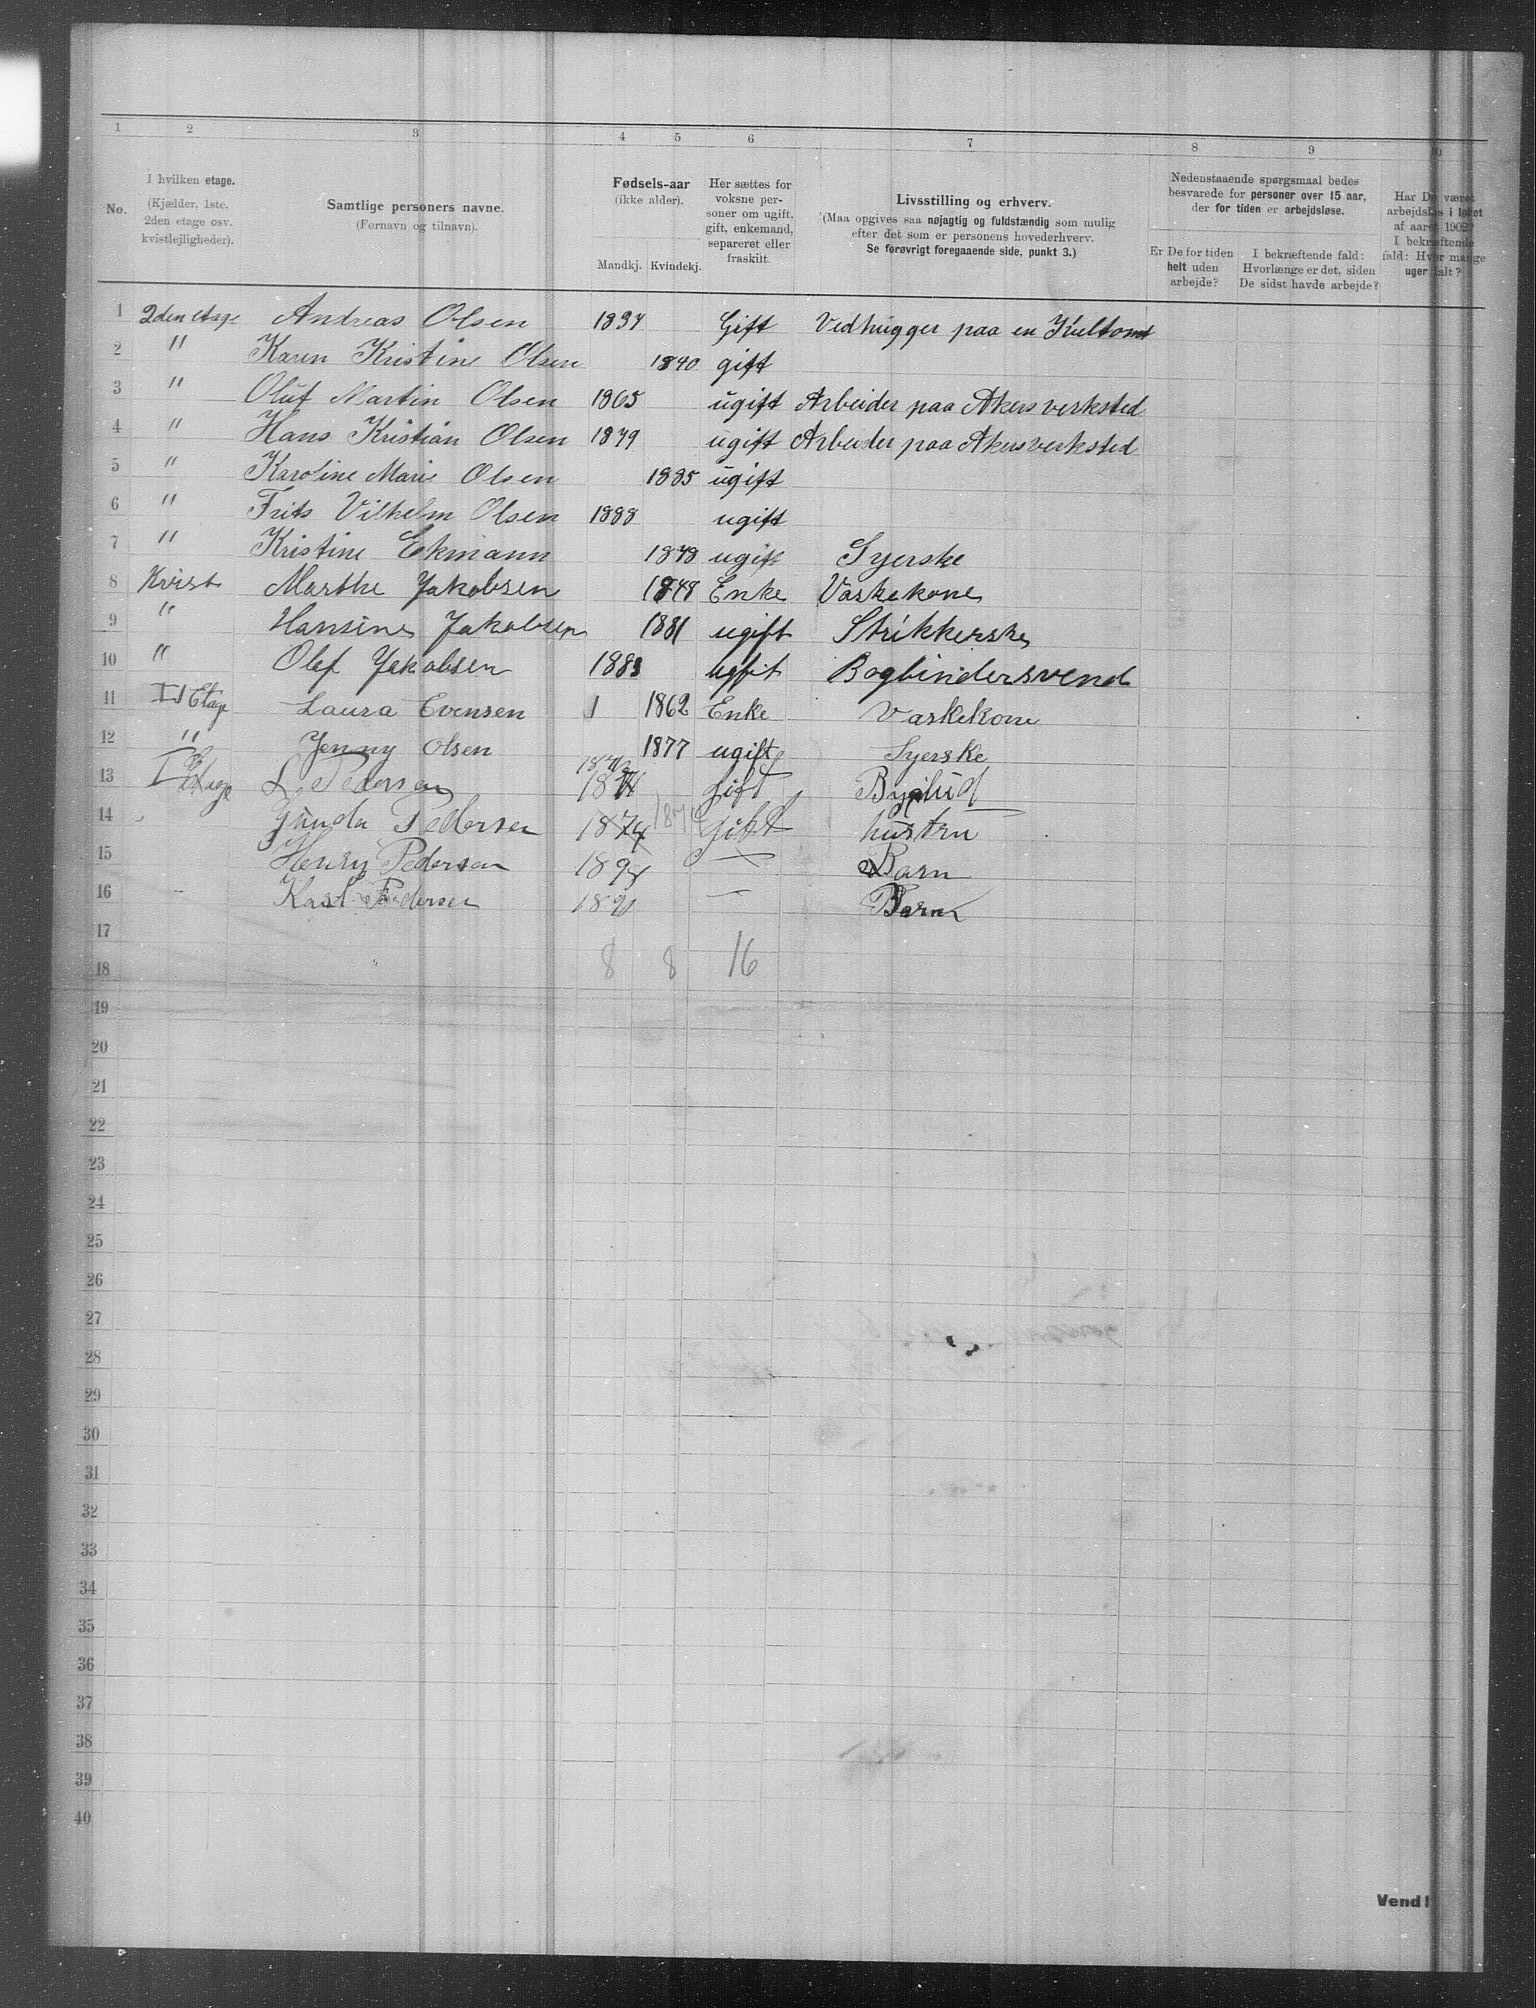 1 2 3 4 5 6 7 8 9 10
No. I hvilken etage. (Kjælder, 1ste, 2den etage osv. kvistlejligheder). Samtlige personers navne. (Fornavn og tilnavn). Fødsels-aar (ikke alder). Mandkj. Kvindekj. Her sættes for voksne personer om ugift, gift, enkemand, separeret eller fraskilt. Livsstilling og erhverv. (Maa opgives saa nøjagtig og fuldstændig som mulig efter det som er personens hovederhverv. Se forøvrigt foregaaende side, punkt 3.) Nedenstaaende spørgsmaal bedes besvarede for personer over 15 aar, der for tiden er arbejdsløse. Er De for tiden helt uden arbejde? I bekræftende fald: Hvorlænge er det, siden De sidst havde arbejde? Har De været arbejdsløs i løbet af aaret 1902? I bekræftende fald: Hvor mange uger ialt?
1 2den etage Andreas Olsen 1834 Gift Vedhugger paa en Kultomt
2 " Karen Kristine Olsen 1840 gift
3 " Oluf Martin Olsen 1865 ugift Arbeider paa Akers verksted
4 " Hans Kristian Olsen 1879 ugift Arbeider paa Akers verksted
5 " Karoline Marie Olsen 1885 ugift
6 " Frits Vilhelm Olsen 1888 ugift
7 " Kristine Ekmann 1848 ugift Syerske
8 Kvist Marthe Jakobsen 1848 Enke Vaskekone
9 " Hansine Jakobsen 1881 ugift Strikkerske
10 " Olaf Jakobsen 1883 ugfit Bogbindersvend
11 II Etage Laura Evensen 1 1862 Enke Vaskekone
12 " Jenny Olsen 1877 ugift Syerske
13 I Etage L. Pedersen gift Bypbud
14 Gunda Pedersen 1874 1874 gift hustru
15 Henry Pedersen — Barn
16 Karl Pedersen — Barn
17
18 8 8 16
19
20
21
22
23
24
25
26
27
28
29
30
31
32
33
34
35
36
37
38
39
40
Vend!